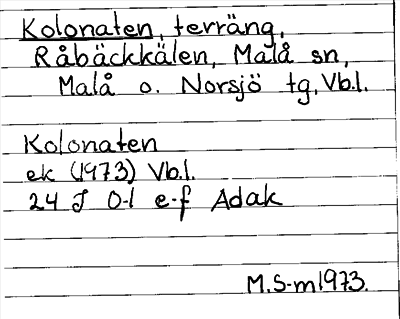 Kolonaten, terräng,
Råbäckkälen, Malå sn,
Malå o. Norsjö tg, Vb.l.
Kolonaten
ek (1973) Vb.l.
24 J 0-1 e-f Adak
M.S-m 1973.